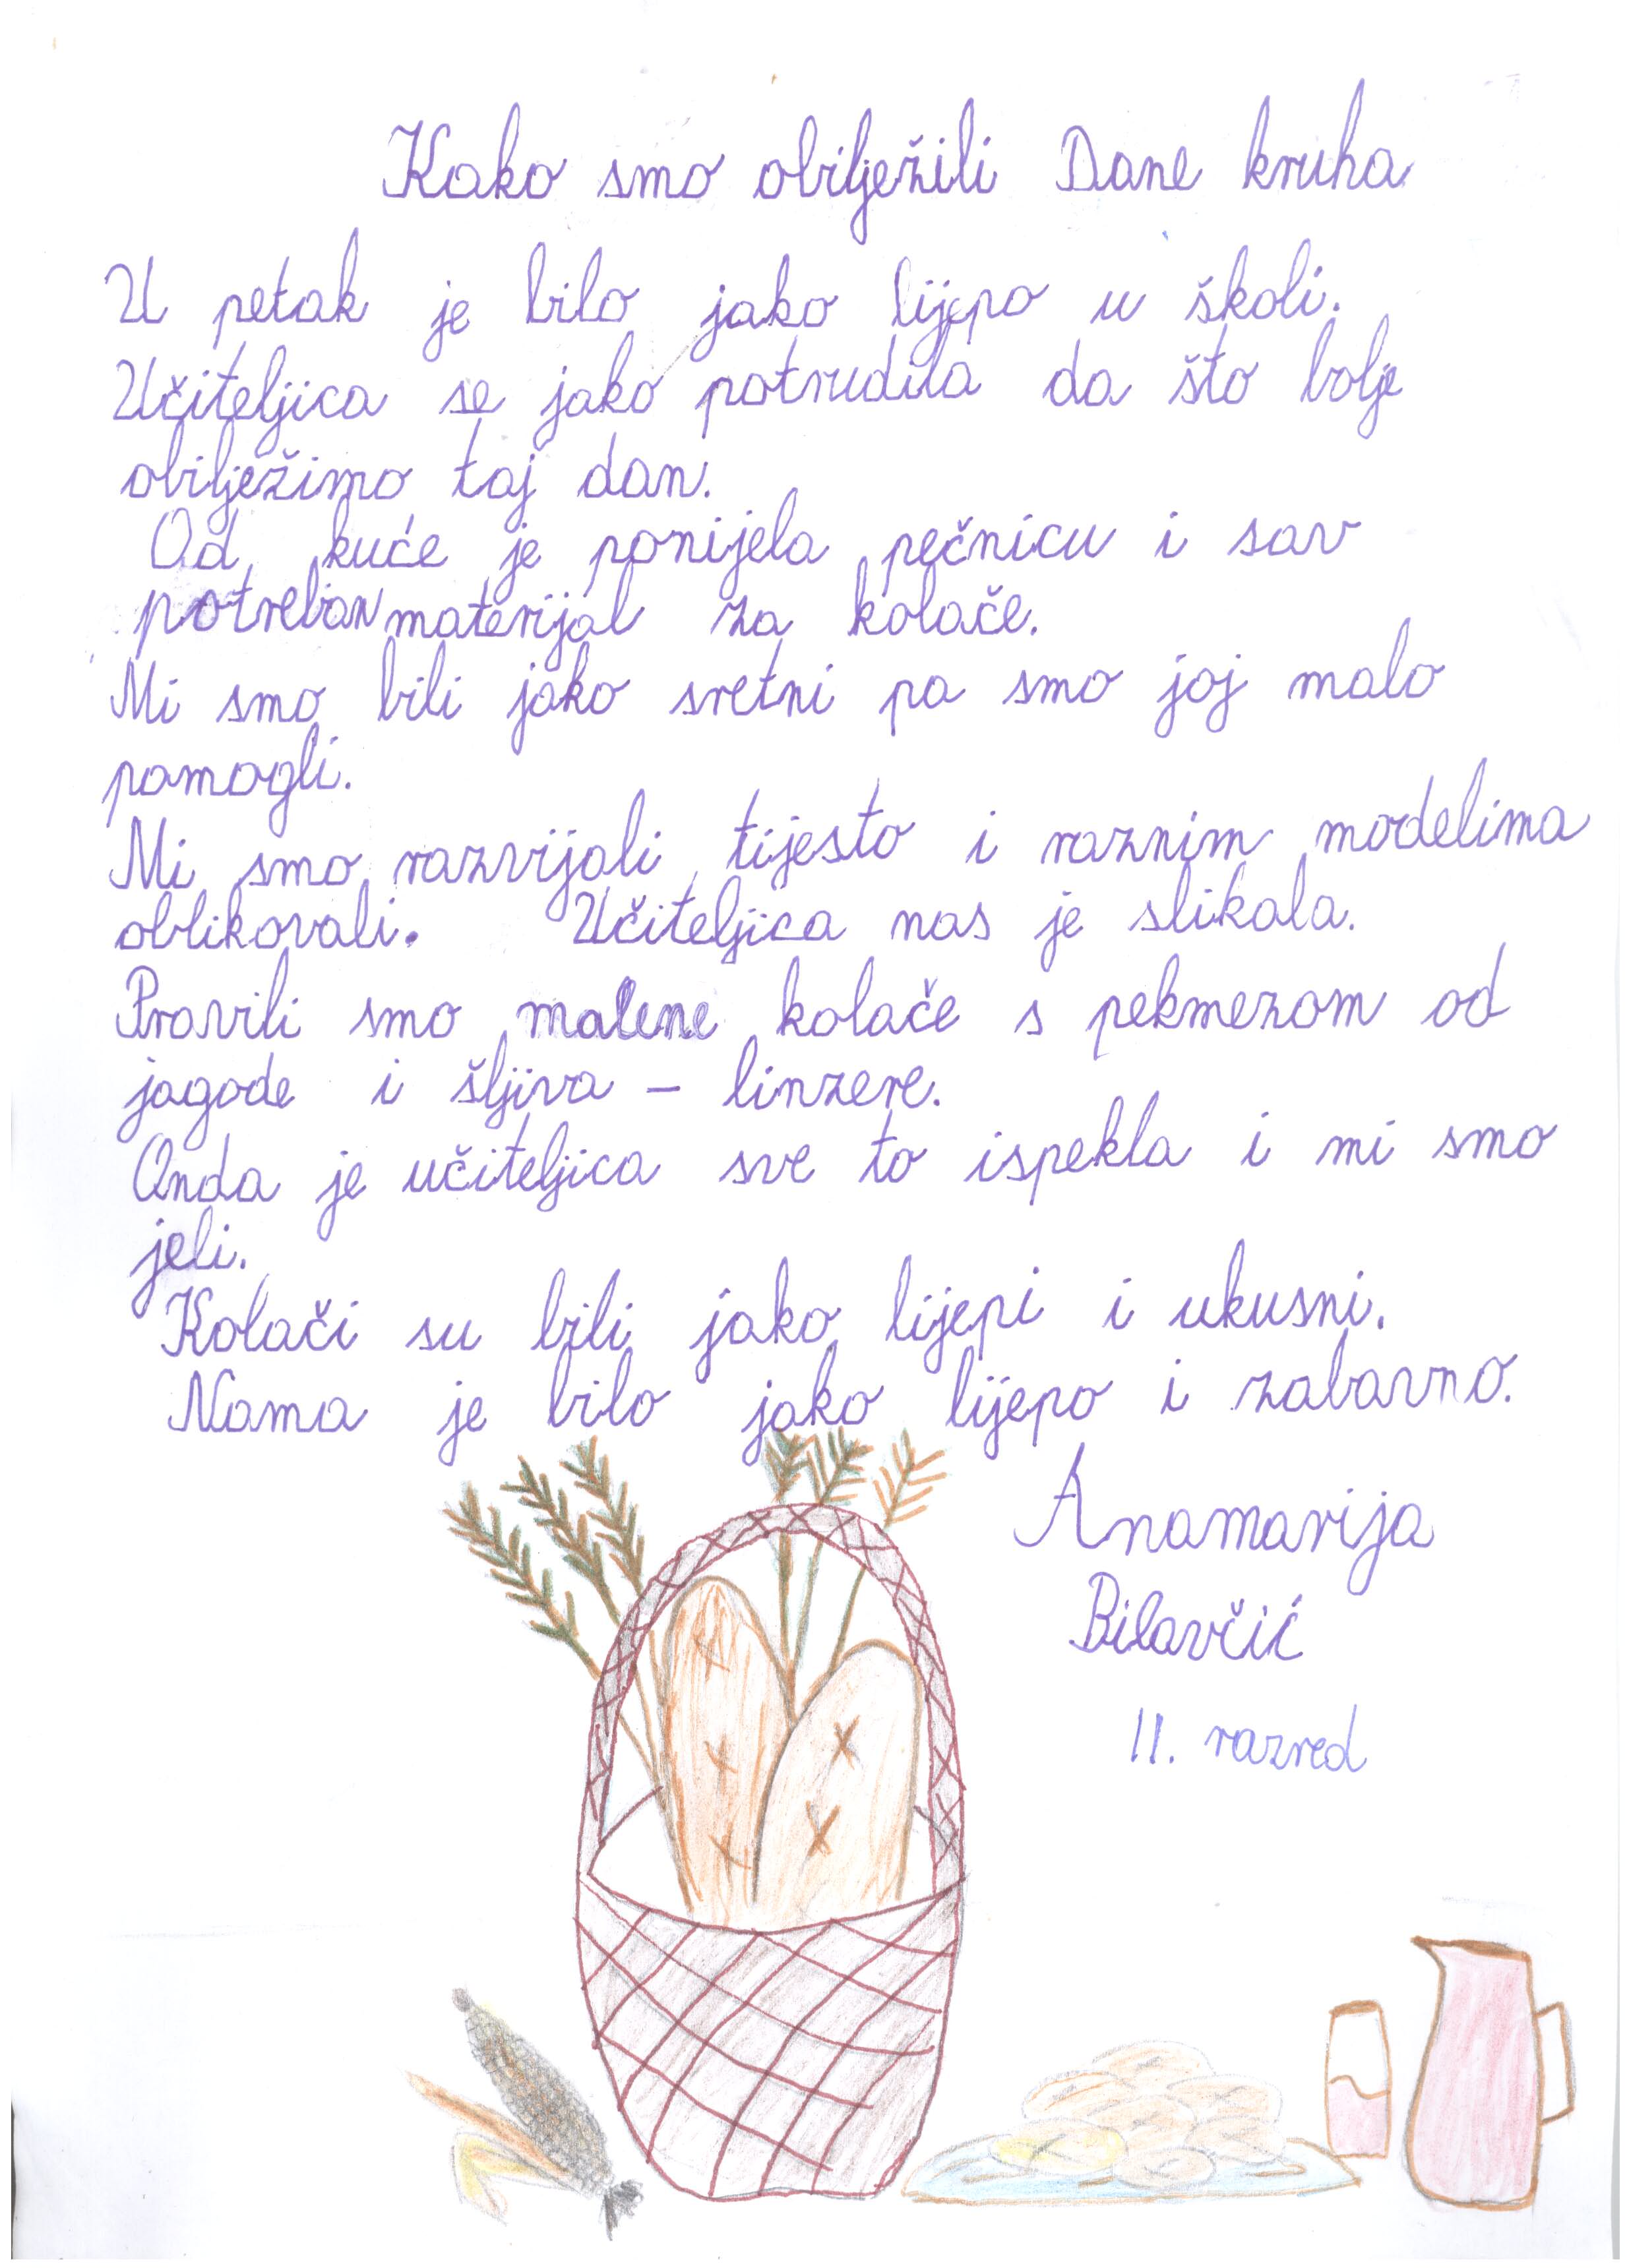 Kako smo obilježili Dane kruha
U petak je bilo jako lijepo u školi.
Učiteljica se jako potrudila da što bolje
obilježimo taj dan.
Od kuće je ponijela pečnicu i sav
potreban materijal za kolače.
Mi smo bili jako sretni pa smo joj malo
pomogli.
Mi smo razvijali tijesto i raznim modelima
oblikovali. Učiteljica nas je slikala.
Pravili smo malene kolače s pekmezom od
jagode i šljiva - linzere.
Onda je učiteljica sve to ispekla i mi smo
jeli.
Kolači su bili jako lijepi i ukusni.
Nama je bilo jako lijepo i zabavno.
Anamarija
Bilavčić
II. razred